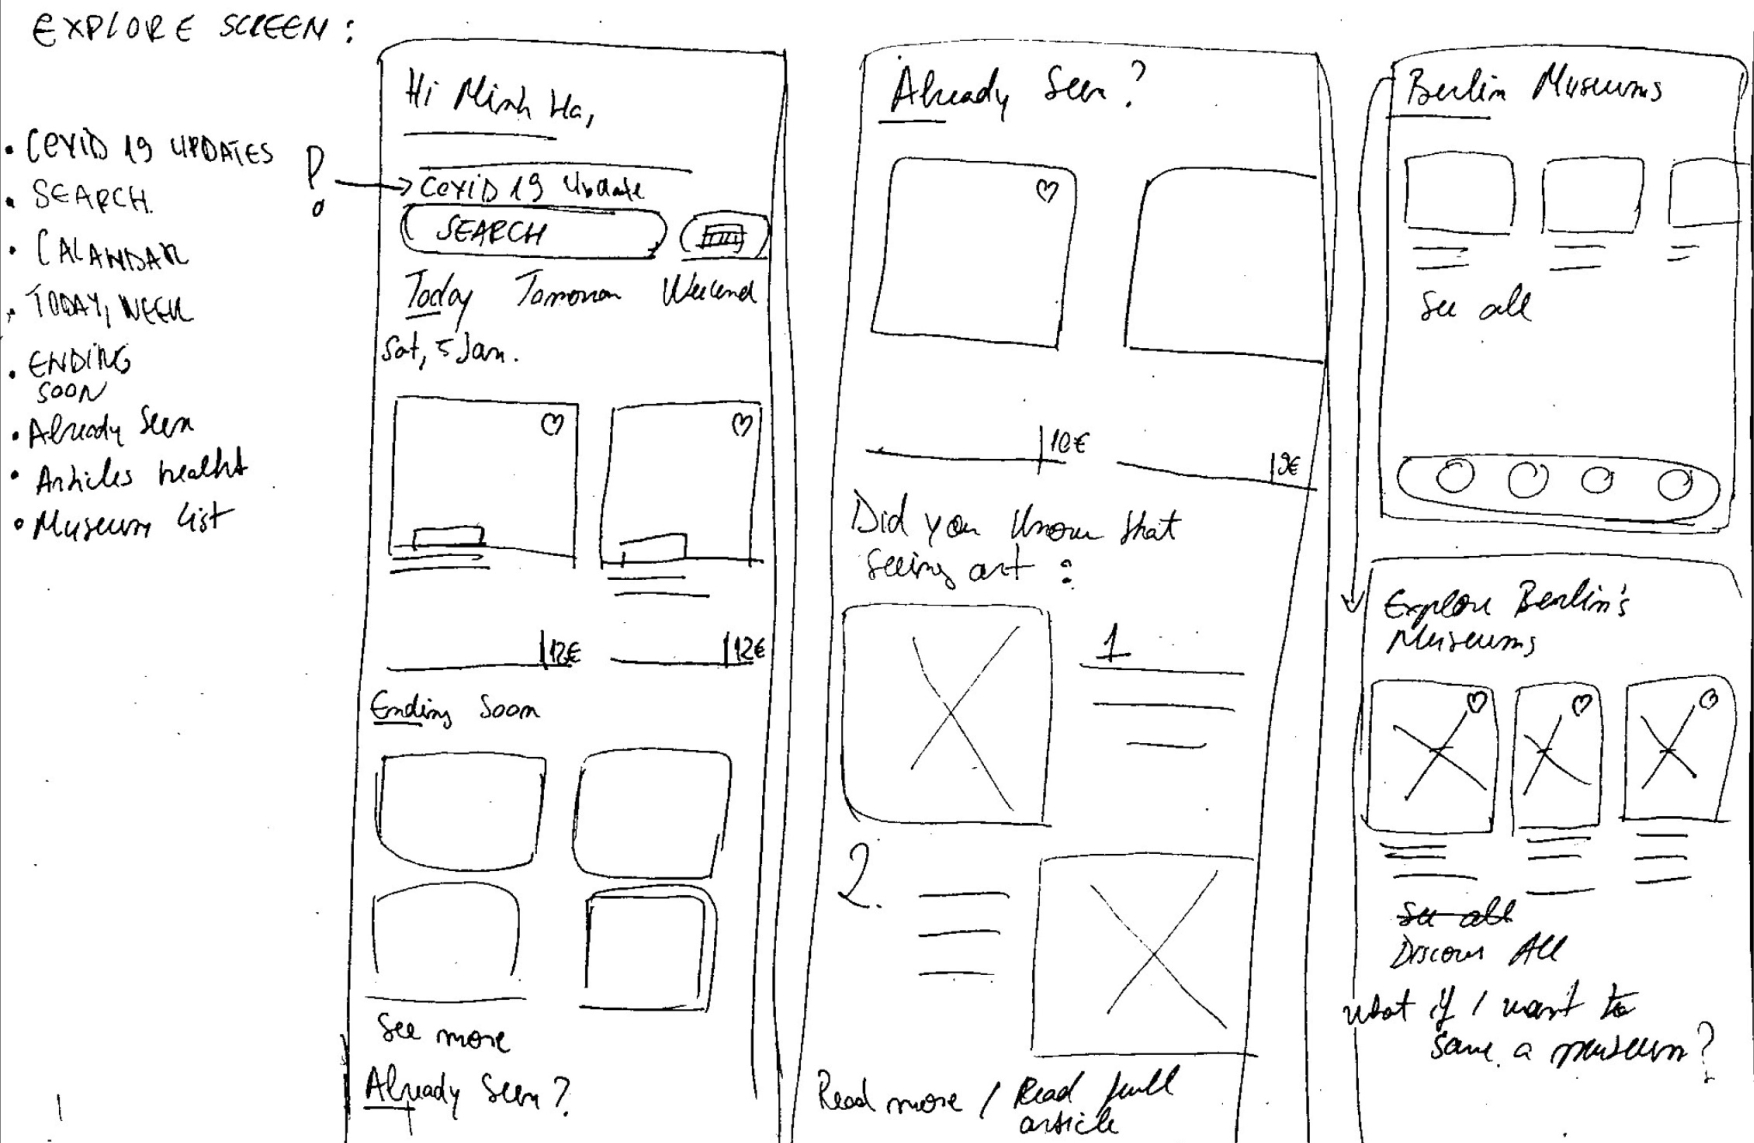 EXPLORE SCREEN:
• COVID 19 UPDATES
• SEARCH
• CALANDAR
• TODAY, WEEK
• ENDING
SOON
• Already Seen
• Articles healht
• Museum list
?!
Hi Minh Ha,
COVID 19 Update
SEARCH
Today Tomorrow Weekend
Sat, 5 Jan.
12€ 12€
Ending Soon
See more
Already Seen?
Already Seen?
10€ 9€
Did you know that
seeing art :
1
2.
Read more / Read full
article
Berlin Museums
See all
Explore Berlin's
Museums
See all
Discover All
what if I want to
save a museum?